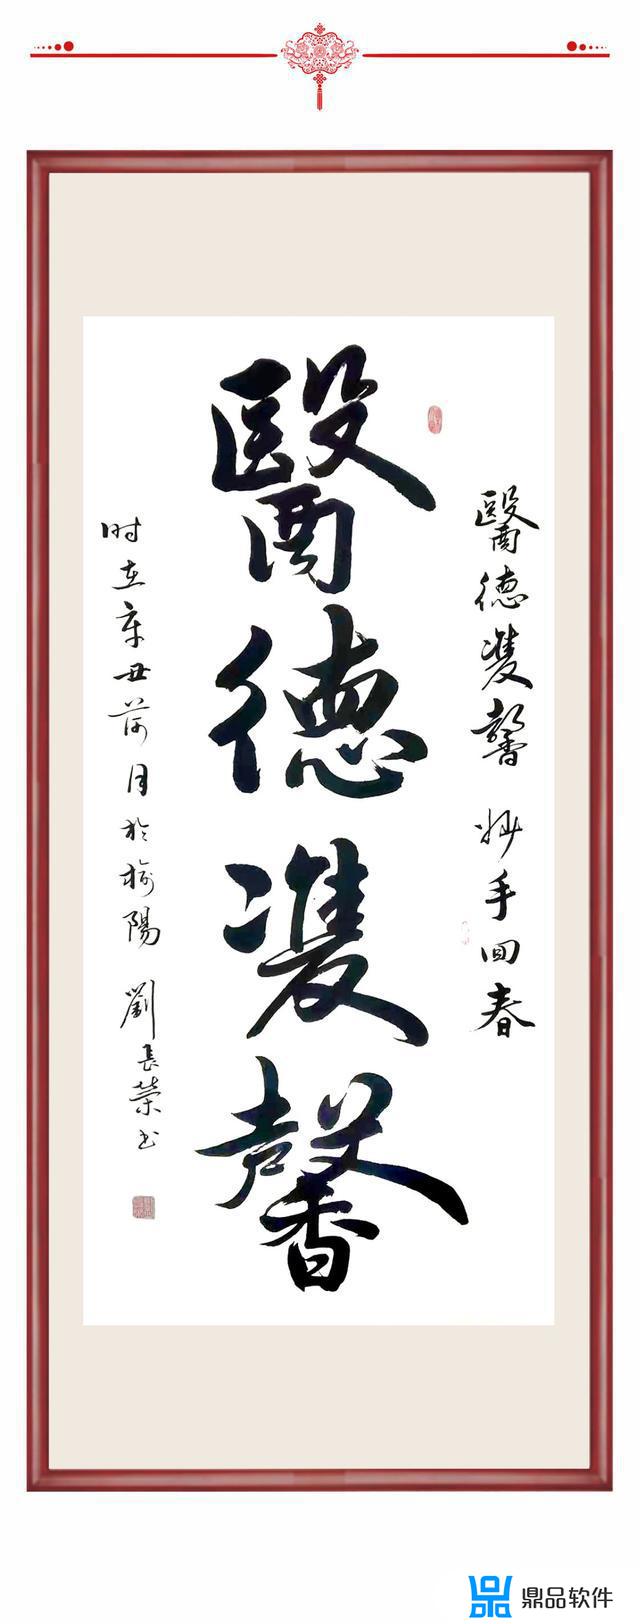 醫德雙馨 妙手回春
醫德雙馨
时在辛丑荷月於榆陽 劉長榮书
鼎品软件